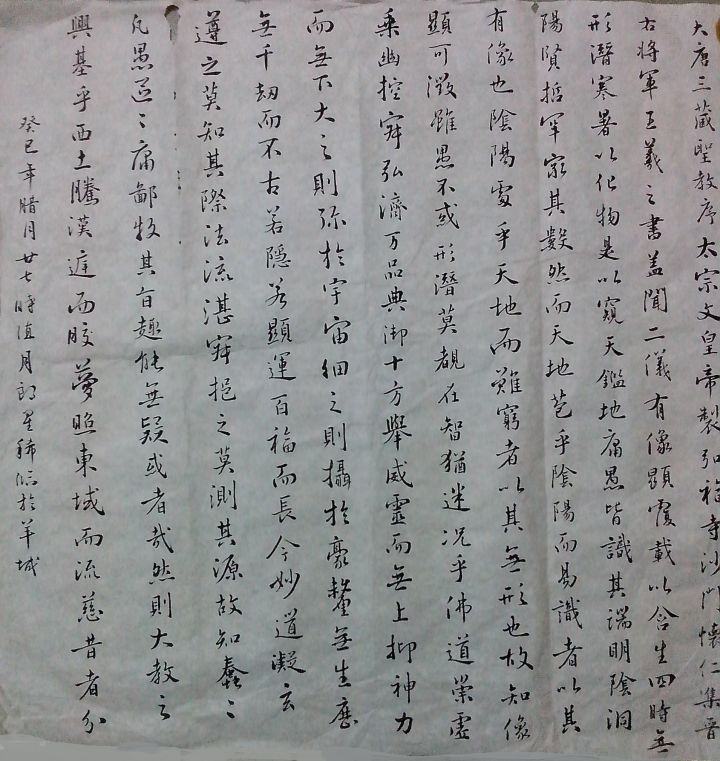 大唐三藏聖教序太宗文皇帝製弘福寺沙門懷仁集晉
右將軍王羲之書蓋聞二儀有像顯覆載以含生四時無
形潛寒暑以化物是以窺天鑑地庸愚皆識其端明陰洞
陽賢哲罕窮其數然而天地苞乎陰陽而易識者以其
有像也陰陽處乎天地而難窮者以其無形也故知像
顯可徵雖愚不惑形潛莫覩在智猶迷況乎佛道崇虛
乘幽控寂弘濟万品典御十方舉威靈而無上抑神力
而無下大之則弥於宇宙細之則攝於豪釐無生無
千劫而不古若隱若顯運百福而長今妙道凝玄
遵之莫知其際法流湛寂挹之莫測其源故知蠢〻
凡愚區〻庸鄙投其旨趣能無疑或者哉然則大教之
興基乎西土騰漢庭而皎夢照東域而流慈昔者分
癸巳年腊月廿七時值月朗星稀臨於羊城